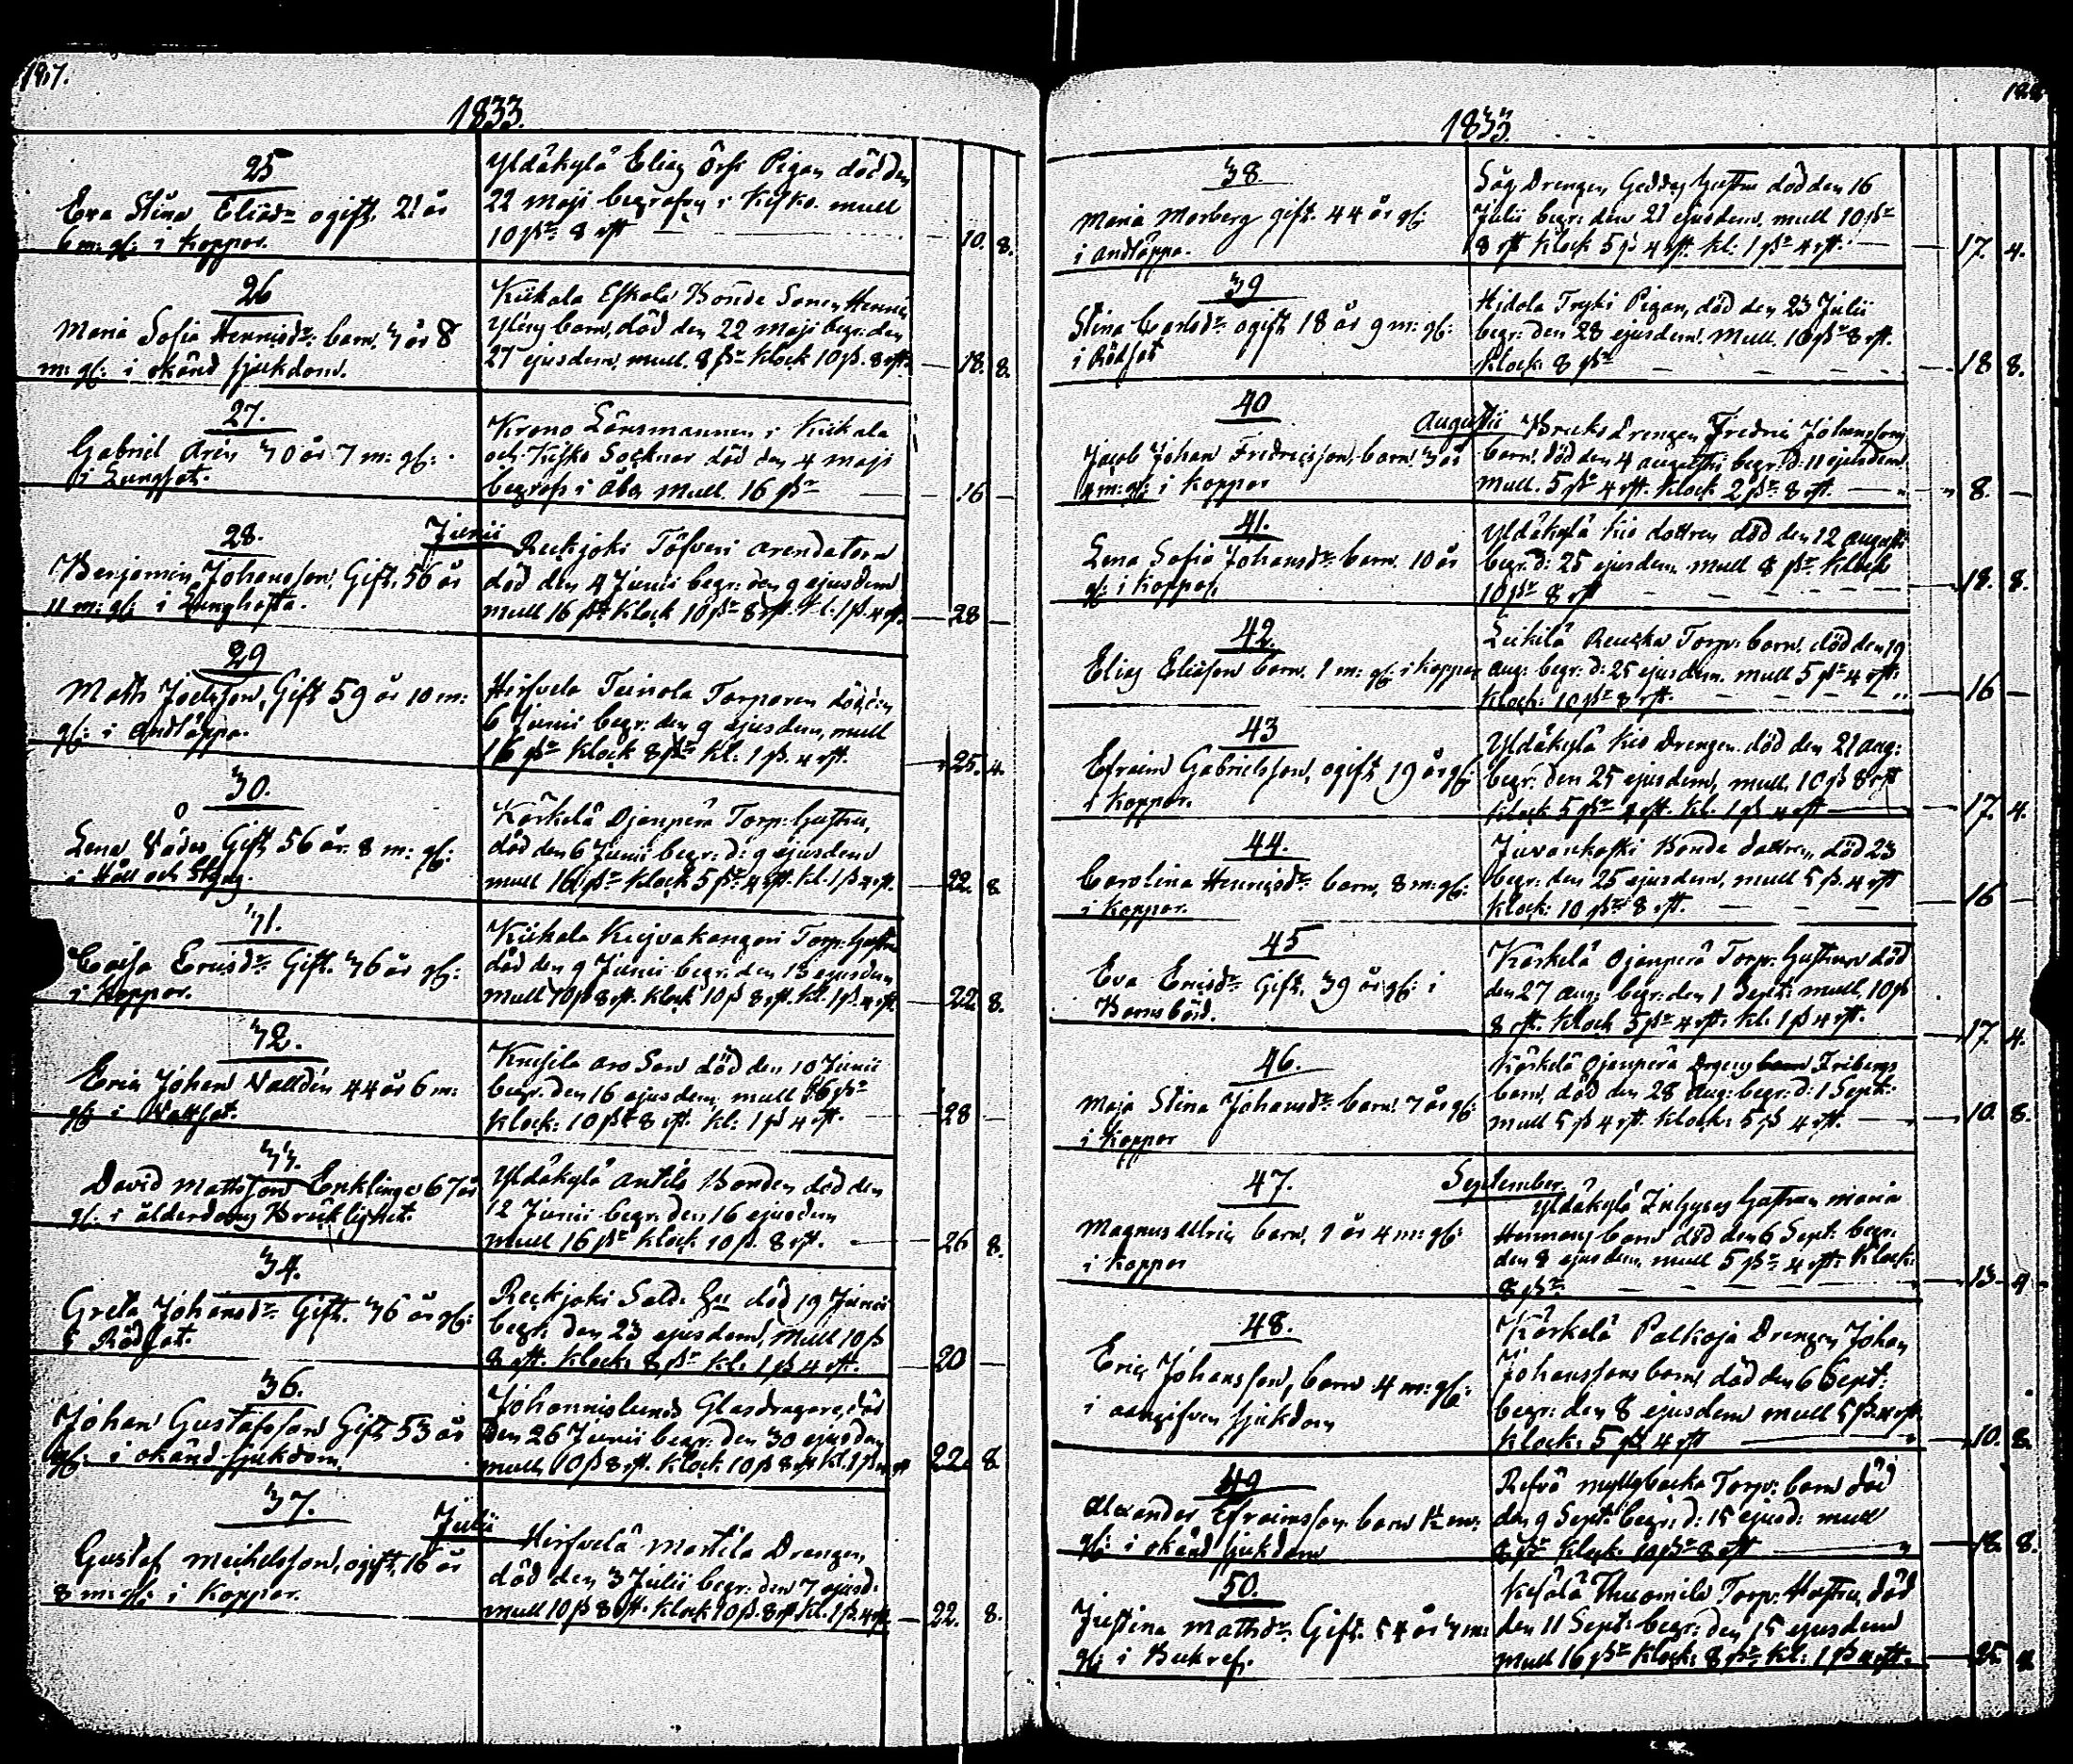 187.
1833.
25
Eva Stina Eliæd:r ogift, 21 år
6 m: gl: i Koppor.
Yldäkylä Elias Örfs Pigan död den
22 Maji begrafven i Kisko. mull
10 ß:r 8 rft
10. 8.
26
Maria Sofia Henricsd:r barn. 3 år 8
m: gl: i okänd sjukdom.
Kiikala Eskola Bonde Sonen Henric
barn, död den 22 Maji begr: den
27 ejusdem, mull. 8 ß:r Klock 10 ß. 8 rft.
18. 8.
27.
Gabriel Arén 30 år 7 m: gl:
i Lungsot.
Krono Länsmannen i Kiikala
och Kisko Socknar död den 4 Maji
begrofs i Åbo, Mull. 16 ß:r
16
28.
Junii
Benjamin Johansson, Gift. 56 år
11 m: gl: i Lunghosta.
Reckjoki Töfveri arendatorn
död den 4 Junii begr: den 9 ejusdem
mull 16 ß:r Klock 10 ß:r 8 rft. Kl. 1 ß. 4 rft.
28
29
Matts Joelsson, Gift 59 år 10 m:
gl: i Andtäppa.
Hirsvela Teinola Torparen död den
6 Junii begr: den 9 ejusdem, mull
16 ß:r Klock 8 ß:r Kl: 1 ß. 4 rft.
25. 4.
30.
Lena Gift 56 år 8 m: gl:
i Håll och Styng.
Kärkelä Ojanperä Torp: Hustru,
död den 6 Junii begr: d: 9 ejusdem
mull 16 ß:r Klock 5 ß:r 4 rft. Kl. 1 ß 4 rft.
22. 8
31.
Caisa Ericsd:r Gift. 36 år gl:
i Koppor.
Kiikala Torp: Hustru
död den 9 Junii begr: den 13 ejusdem
mull 10 ß 8 rft. Klock 10 ß 8 rft. Kl. 1 ß. 4 rft.
22. 8.
32.
Eric Johan Valldin 44 år 6 m:
gl: i Vattsot.
Kruusila Aro Son död den 10 Junii
begr. den 16 ejusdem, mull 16 ß:r
Klock: 10 ß:r 8 rft. Kl: 1 ß 4 rft.
28
33.
David Mattsson Enklinge 67 år
gl: i ålderdoms Bräcklighet.
Yldäkylä Antila Bonden död den
12 Junii begr. den 16 ejusdem
mull 16 ß:r Klock 10 ß. 8 rft.
26 8.
34.
Greta Johansd:r Gift. 36 år gl:
i Rödsot.
Reckjoki Sold: död 19 Junii
begr. den 23 ejusdem, mull 10 ß
8 rft. Klock: 8 ß:r Kl. 1 ß 4 rft.
20
36.
Johan Gustafsson Gift 53 år
gl: i okänd sjukdom.
Johannislunds Glasdragare, död
den 26 Junii begr. den 30 ejusdem
mull, 10 ß 8 rft. Klock 10 ß 8 rft Kl. 1 ß 4 rft
22. 8
37.
Julii
Gustaf Michelsson, ogift, 16 år
8 m: gl: i Koppor.
Hirsvelä Martila Drengen,
död den 3 Julii begr: den 7 ejusd:
mull 10 ß 8 rft. Klock 10 ß. 8 rft Kl. 1 ß. 4 rft.
22. 8.
188.
1833.
38.
Maria Morberg gift. 44 år gl:
i Andtäppa.
Såg Drengen Hustru död den 16
Julii begr: den 21 ejusdem. mull 10 ß:r
8 rft Klock 5 ß 4 rft. Kl: 1 ß:r 4 rft.
17. 4.
39
Stina Carlsd:r ogift 18 år 9 m: gl:
i Rödsot
Hidola Pigan, död den 23 Julii
begr: den 28 ejusdem. Mull, 10 ß:r 8 rft.
Klock: 8 ß:r
18 8.
40
Augustii
Jacob Johan Fredricsson, barn. 3 år
4 m: gl: i Koppor
Bruks Drengen Fredric Johanssons
barn. död den 4 Augusti begr: d: 11 ejusdem
mull. 5 ß:r 4 rft. Klock 2 ß:r 8 rft.
8.
41.
Lena Sofia Johansd:r barn. 10 år
gl: i Koppor,
Yldäkylä Kio dottren död den 12 augusti
begr. d: 25 ejusdem. mull 8 ß:r Klock
10 ß:r 8 rft
18. 8.
42.
Elias Eliæson barn. 1 m: gl: i Koppor
Leikilä Torp: barn. död den 19
aug: begr: d: 25 ejusdem. mull 5 ß:r 4 rft:
Klock: 10 ß:r 8 rft.
16
43
Efraim Gabrielsson, ogift, 19 år gl:
i Koppor.
Yldäkylä Kio Drengen död den 21 aug:
begr: den 25 ejusdem, mull, 10 ß 8 rft
Klock 5 ß:r 4 rft. Kl. 1 ß 4 rft
17. 4.
44.
Carolina Henricsd:r barn, 8 m: gl:
i Koppor.
Juvankoski Bonde dottren, död 23
begr: den 25 ejusdem, mull 5 ß. 4 rft
Klock: 10 ß:r 8 rft.
16
45
Eva Ericsd:r Gift. 39 år gl: i
Barnsbörd.
Kärkelä Ojanperä Torp: Hustrun död
den 27 aug: begr: den 1 Sept: mull, 10 ß
8 rft. Klock 5 ß:r 4 rft. Kl. 1 ß 4 rft.
17. 4.
46.
Maja Stina Johansd:r barn. 7 år gl:
i Koppor
Kärkelä Ojanperä Drengs barn Fribergs
barn, död den 28 Aug: begr: d: 1 Sept:
mull 5 ß 4 rft. Klock: 5 ß 4 rft.
10. 8.
47.
September.
Magnus Ulric barn, 1 år 4 m: gl:
i Koppor
Yldäkylä Inhyses Hustrun Maria
Hermans barn död den 6 Sept: begr.
den 8 ejusdem, mull 5 ß:r 4 rft: Klock:
8 ß:r
13 4
48.
Eric Johansson, barn 4 m: gl:
i oangifven sjukdom
Kärkelä Palkoja Drengen Johan
Johanssons barn, död den 6 Sept:
begr: den 8 ejusdem mull 5 ß. 4 rft
Klock: 5 ß 4 rft
10. 8.
49
Alexander Efraimsson barn 1/2 m:
gl: i okänd sjukdom
Myllybacka Torp: barn död
den 9 Sept: begr: d: 15 ejusd: mull
8 ß:r Klock. 10 ß:r 8 rft
18. 8.
50.
Justina Mattsd:r Gift. 54 år 3 m:
gl: i Bukref.
Torp: Hustru, död
den 11 Sept: begr: den 15 ejusdem
mull 16 ß:r Klock: 8 ß:r, Kl: 1 ß 4 rft.
25 4